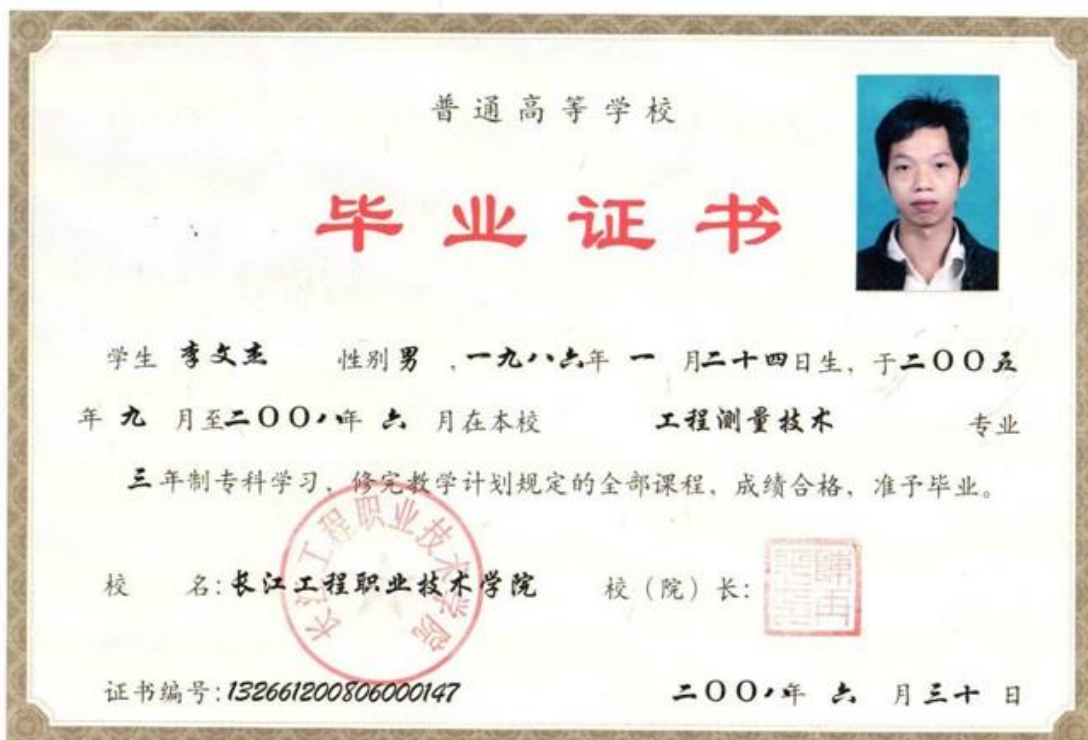 普通高等学校
毕业证书
学生 李文杰 性别 男 ,一九八六年 一 月二十四日生，于二〇〇五
年 九 月至二〇〇八年 六 月在本校 工程测量技术 专业
三年制专科学习，修完教学计划规定的全部课程，成绩合格，准予毕业。
校 名:长江工程职业技术学院 校（院）长:
长江工程职业技术学院
证书编号:132661200806000147 二〇〇八年 六 月三十日